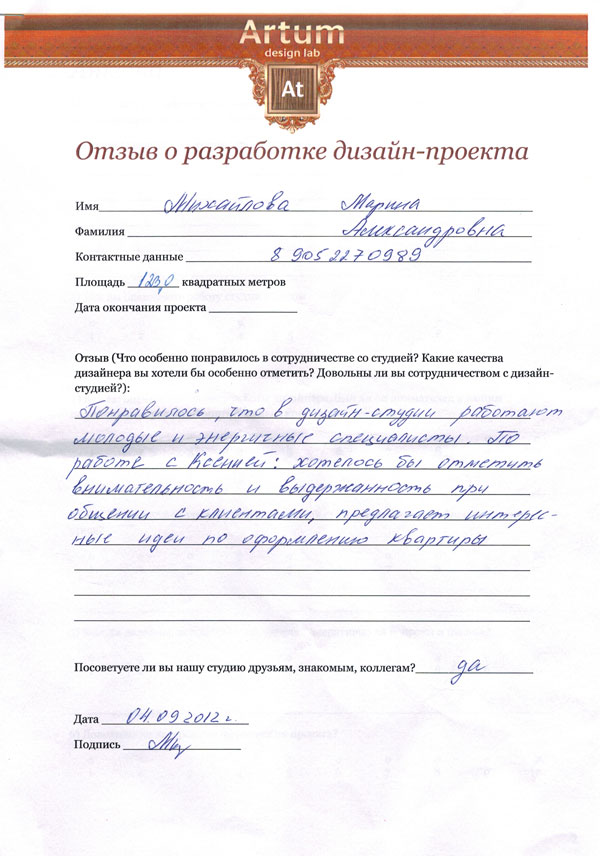 Artum
design lab
At
Отзыв о разработке дизайн-проекта
Имя Михайлова Марина
Фамилия Александровна
Контактные данные 8 9052270989
Площадь 123,0 квадратных метров
Дата окончания проекта
Отзыв (Что особенно понравилось в сотрудничестве со студией? Какие качества
дизайнера вы хотели бы особенно отметить? Довольны ли вы сотрудничеством с дизайн-
студией?):
Понравилось, что в дизайн-студии работают
молодые и энергичные специалисты. По
работе с Ксенией: хотелось бы отметить
внимательность и выдержанность при
общении с клиентами, предлагает интерес-
ные идеи по оформлению квартиры
Посоветуете ли вы нашу студию друзьям, знакомым, коллегам? да
Дата 04.09 2012 г.
Подпись